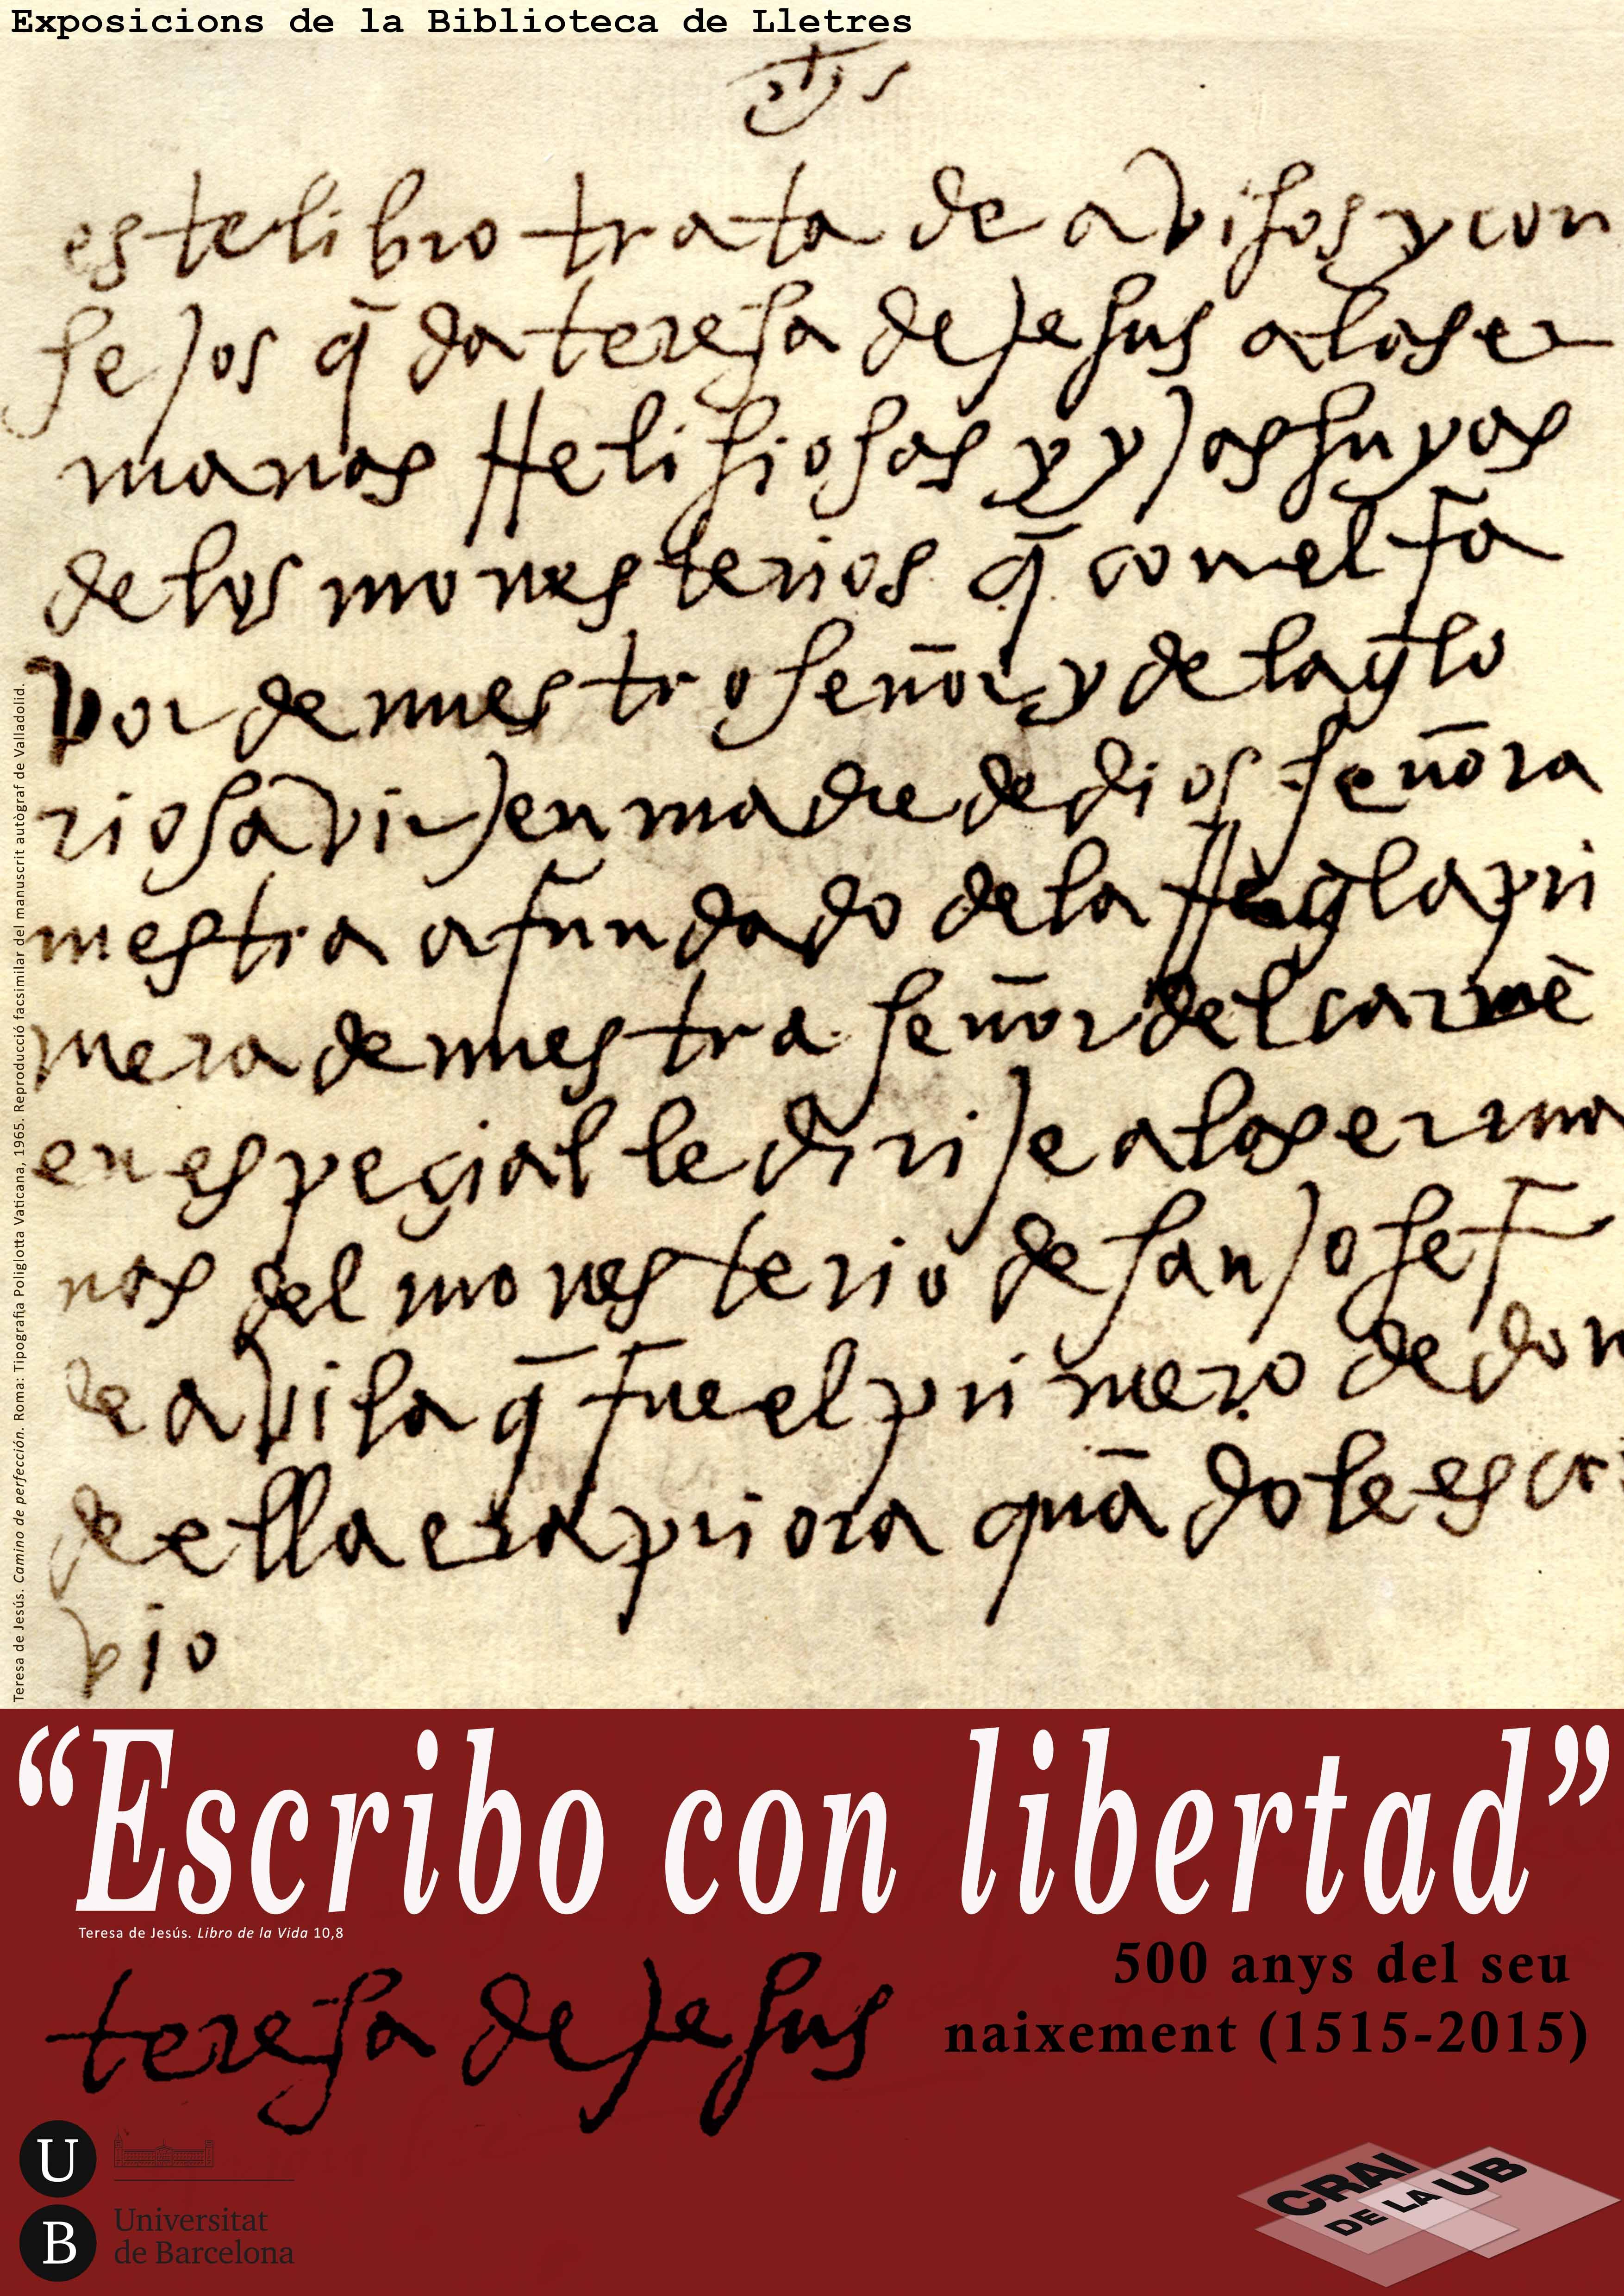 Exposicions de la Biblioteca de Lletres
este libro trata de avisos y con
sejos q̄ da teresa de Jesus a las er
manas Relisiosas y yjas suyas
de los monesterios q̄ con el fa
vor de nuestro señor y de la glo
riosa virjen madre de dios señora
nuestra a fundado de la Regla pri
mera de nuestra señor del carmē
en espeçial le dirije a las erma
nas del monesterio de san Josef
de avila q̄ fue el primero de don
de ella era priora quādo le escri
vio
Teresa de Jesús. Camino de perfección. Roma: Tipografia Poliglotta Vaticana, 1965. Reproducció facsimilar del manuscrit autògraf de Valladolid.
“Escribo con libertad”
Teresa de Jesús. Libro de la Vida 10,8
500 anys del seu
naixement (1515-2015)
teresa de Jesus
UB
Universitat
de Barcelona
CRAI
DE LA UB